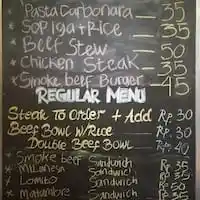 * Pasta Carbonara — 35
- Sop iga + Rice — 35
- Beef Stew — 50
* Chicken Steak — 35
* Smoke beef Burger - 45
REGULAR MENU
Steak To Order + Add Rp. 30
Beef Bowl w/Rice Rp. 30
Double Beef Bowl Rp. 40
* Smoke beef Sandwich Rp 35
* Milanesa Sandwich Rp 35
* Lomito Sandwich Rp 50
* Matambre Sandwich Rp 35